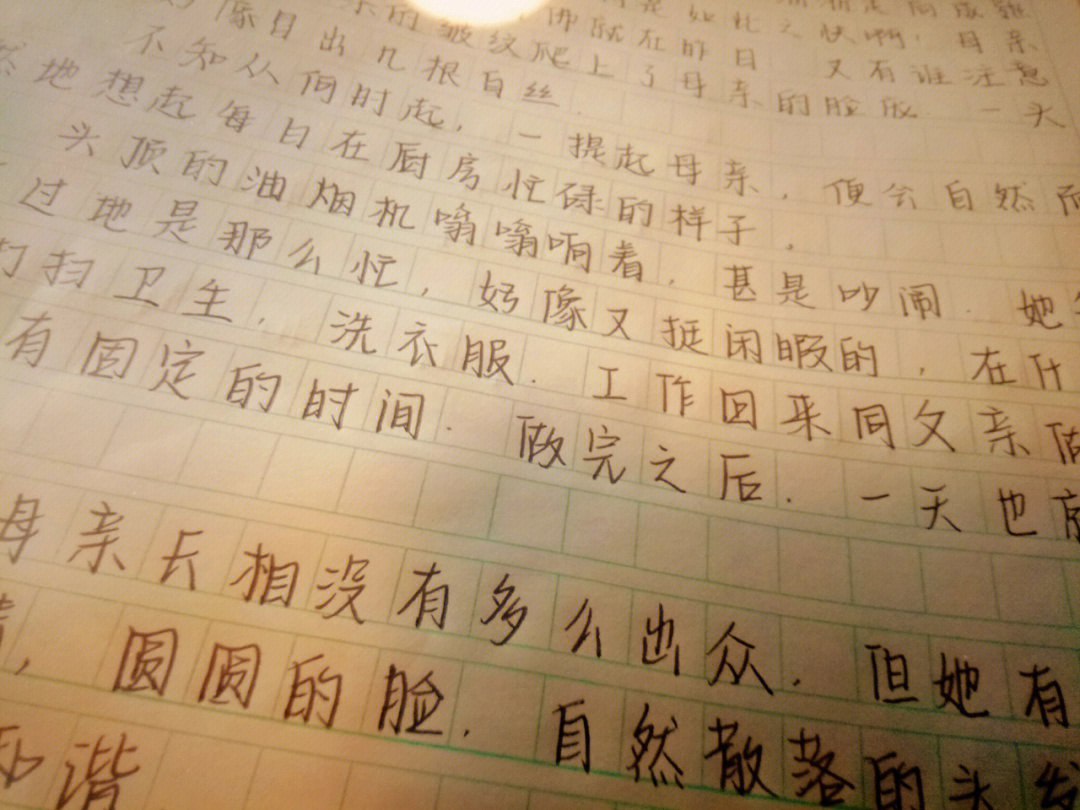 是如此之快啊，母亲
佛就在昨日．又有谁注意
的皱纹爬上了母亲的脸庞．一头
出几根白丝．
不知从何时起，一提起母亲，便会自然而
然地想起每日在厨房忙碌的样子，
头顶的油烟机嗡嗡响着，甚是吵闹．她
过地是那么忙，好像又挺闲暇的，在什
打扫卫生，洗衣服．工作回来同父亲做
有固定的时间．做完之后．一天也
母亲长相没有多么出众．但她有
，圆圆的脸．自然散落的头发
和谐